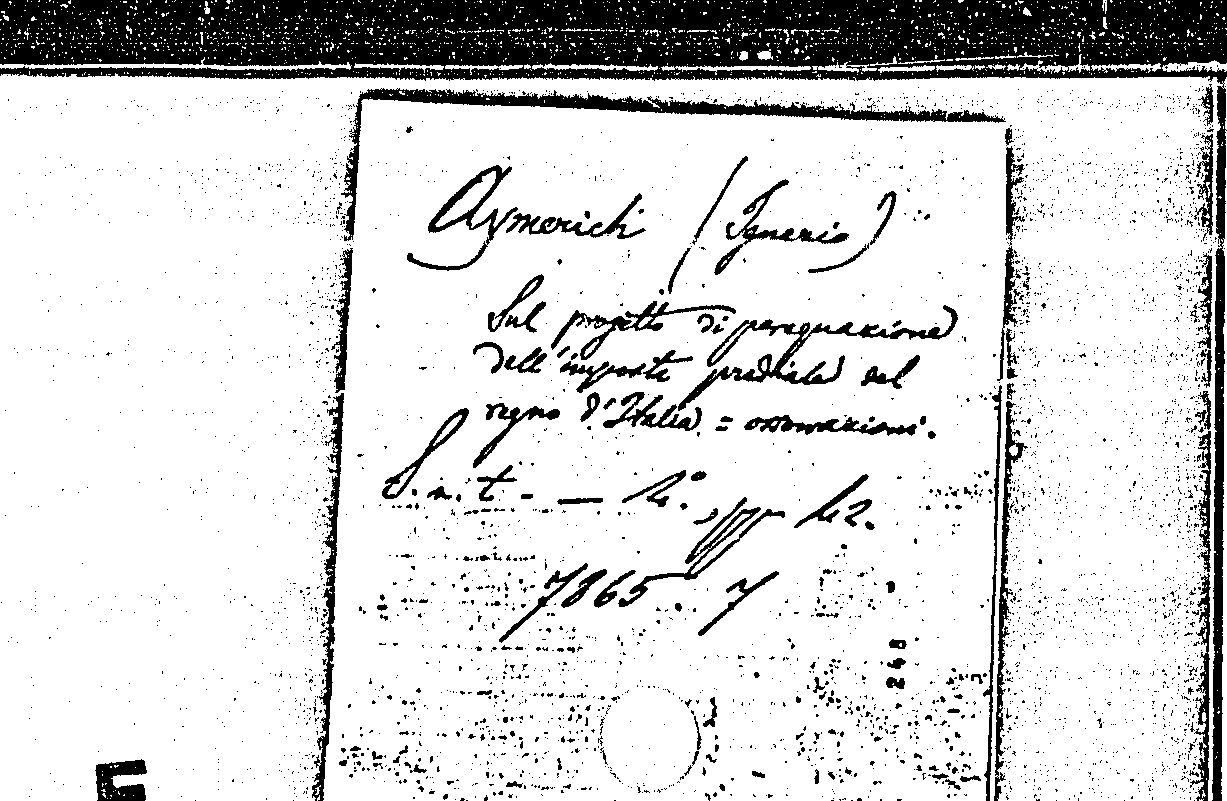 Aymerich (Ignazio)
Sul progetto di perequazione
dell'imposta prediale del
regno d'Italia = osservazioni.
S. n. t. - — 4°. pp 42.
7865. 7
248
E